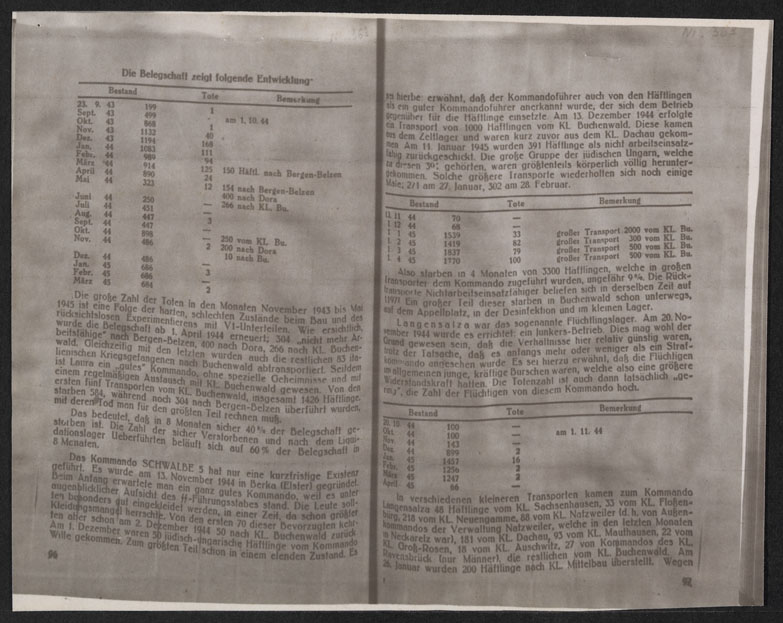 Die Belegschaft zeigt folgende Entwicklung
Bestand Tote Bemerkung
23. 9. 43 199 1
Sept. 43 499 —
Okt. 43 868 am 1. 10. 44
Nov. 43 1132 1
Dez. 43 1194 40
Jan. 44 1083 168
Febr. 44 989 111
März 44 914 94
April 44 890 125 150 Häftl. nach Bergen-Belzen
Mai 44 323 24
12 154 nach Bergen-Belzen
400 nach Dora
Juni 44 250 — 266 nach KL. Bu.
Juli 44 451 —
Aug. 44 447
Sept. 44 447 3
Okt. 44 898 —
Nov. 44 486 — 250 vom KL. Bu.
2 200 nach Dora
Dez. 44 486 10 nach Bu.
Jan. 45 686
Febr. 45 686 3
März 45 684 —
2
Die große Zahl der Toten in den Monaten November 1943 bis Mai
1945 ist eine Folge der harten, schlechten Zustände beim Bau und des
rücksichtslosen Experimentierens mit V1-Unterteilen. Wie ersichtlich,
wurde die Belegschaft ab 1. April 1944 erneuert; 304 „nicht mehr Ar-
beitsfähige" nach Bergen-Belzen, 400 nach Dora, 266 nach KL. Buchen-
wald. Gleichzeitig mit den letzten wurden auch die restlichen 83 ita-
lienischen Kriegsgefangenen nach Buchenwald abtransportiert. Seitdem
ist Laura ein „gutes" Kommando, ohne spezielle Geheimnisse und mit
einem regelmäßigen Austausch mit KL. Buchenwald gewesen. Von den
ersten fünf Transporten vom KL. Buchenwald, insgesamt 1426 Häftlinge,
starben 584, während noch 304 nach Bergen-Belzen überführt wurden,
mit deren Tod men für den größten Teil rechnen muß.
Das bedeutet, daß in 8 Monaten sicher 40 % der Belegschaft ge-
storben ist. Die Zahl der sicher Verstorbenen und nach dem Liqui-
dationslager Ueberführten beläuft sich auf 60 % der Belegschaft in
8 Monaten.
Das Kommando SCHWALBE 5 hat nur eine kurzfristige Existenz
geführt. Es wurde am 13. November 1944 in Berka (Elster) gegründet.
Beim Anfang erwartete man ein ganz gutes Kommando, weil es unter
augenblicklicher Aufsicht des SS-Führungsstabes stand. Die Leute soll-
ten besonders gut eingekleidet werden, in einer Zeit, da schon größter
Kleidungsmangel herrschte. Von den ersten 70 dieser Bevorzugten kehr-
ten aber schon am 2. Dezember 1944 50 nach KL. Buchenwald zurück.
Am 1. Dezember waren 50 jüdisch-ungarische Häftlinge vom Kommando
Wille gekommen. Zum größten Teil schon in einem elenden Zustand. Es
96
sei hierbei erwähnt, daß der Kommandoführer auch von den Häftlingen
als ein guter Kommandoführer anerkannt wurde, der sich dem Betrieb
gegenüber für die Häftlinge einsetzte. Am 13. Dezember 1944 erfolgte
ein Transport von 1000 Häftlingen vom KL. Buchenwald. Diese kamen
aus dem Zeltlager und waren kurz zuvor aus dem KL. Dachau gekom-
men. Am 11. Januar 1945 wurden 391 Häftlinge als nicht arbeitseinsatz-
fähig zurückgeschickt. Die große Gruppe der jüdischen Ungarn, welche
zu diesen gehörten, waren größtenteils körperlich völlig herunter-
gekommen. Solche größere Transporte wiederholten sich noch einige
Male; 271 am 27. Januar, 302 am 28. Februar.
Bestand Tote Bemerkung
13. 11 44 70 —
1 12 44 68 —
1 1 45 1539 33 großer Transport 2000 vom KL. Bu.
1 2 45 1419 82 großer Transport 300 vom KL. Bu.
1 3 45 1937 79 großer Transport 500 vom KL. Bu.
1 4 45 1770 100 großer Transport 500 vom KL. Bu.
Also starben in 4 Monaten von 3300 Häftlingen, welche in großen
Transporten dem Kommando zugeführt wurden, ungefähr 9 %. Die Rück-
transporte Nichtarbeitseinsatzfähiger beliefen sich in derselben Zeit auf
1197! Ein großer Teil dieser starben in Buchenwald schon unterwegs,
auf dem Appellplatz, in der Desinfektion und im kleinen Lager.
Langensalza war das sogenannte Flüchtlingslager. Am 20. No-
vember 1944 wurde es errichtet: ein Junkers-Betrieb. Dies mag wohl der
Grund gewesen sein, daß die Verhältnisse hier relativ günstig waren,
trotz der Tatsache, daß es anfangs mehr oder weniger als ein Straf-
kommando angesehen wurde. Es sei hierzu erwähnt, daß die Flüchtigen
im allgemeinen junge, kräftige Burschen waren, welche also eine größere
Widerstandskraft hatten. Die Totenzahl ist auch dann tatsächlich „ge-
ring", die Zahl der Flüchtigen von diesem Kommando hoch.
Bestand Tote Bemerkung
20. 10. 44 100 —
Okt. 44 100 — am 1. 11. 44
Nov. 44 143 —
Dez. 44 899 2
Jan. 45 1457 16
Febr. 45 1256 2
März 45 1247 2
April 45 66 —
In verschiedenen kleineren Transporten kamen zum Kommando
Langensalza 48 Häftlinge vom KL. Sachsenhausen, 33 vom KL. Flossen-
bürg, 218 vom KL. Neuengamme, 88 vom KL. Natzweiler (d. h. von Außen-
kommandos der Verwaltung Natzweiler, welche in den letzten Monaten
in Neckarelz war), 181 vom KL. Dachau, 93 vom KL. Mauthausen, 22 vom
KL. Groß-Rosen, 18 vom KL. Auschwitz, 27 von Kommandos des KL.
Ravensbrück (nur Männer), die restlichen vom KL. Buchenwald. Am
26. Januar wurden 200 Häftlinge nach KL. Mittelbau überstellt. Wegen
97